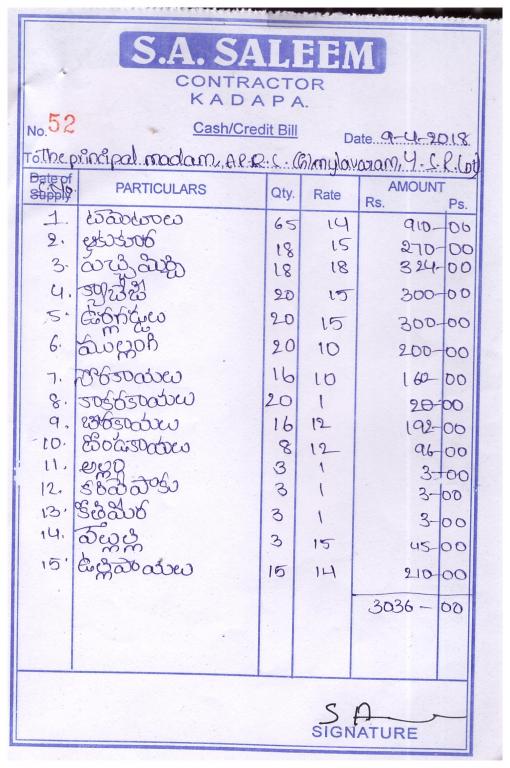 S.A. SALEEM
CONTRACTOR
KADAPA.
No. 52 Cash/Credit Bill Date. 9-4-2018
To. The principal madam, A.P.R.S. (G) mylavaram, Y.S.R. (Dt)
Date of Supply S.No. PARTICULARS Qty. Rate AMOUNT Rs. Ps.
1. టమోటాలు 65 14 910-00
2. ఆకుకూర 18 15 270-00
3. పచ్చిమిర్చి 18 18 324-00
4. క్యాబేజి 20 15 300-00
5. ఉర్లగడ్డలు 20 15 300-00
6. ముల్లంగి 20 10 200-00
7. సోరకాయలు 16 10 160-00
8. కాకరకాయలు 20 1 20-00
9. బీరకాయలు 16 12 192-00
10. దొండకాయలు 8 12 96-00
11. అల్లం 3 1 3-00
12. కరివేపాకు 3 1 3-00
13. కొత్తిమీర 3 1 3-00
14. వెల్లుల్లి 3 15 45-00
15. ఉల్లిపాయలు 15 14 210-00
3036-00
SA
SIGNATURE